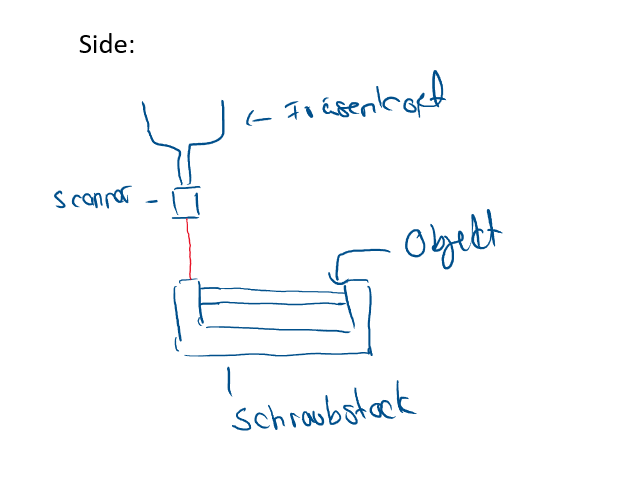 Side:
← Fräsenkopf
Scanner -
Objekt
Schraubstock